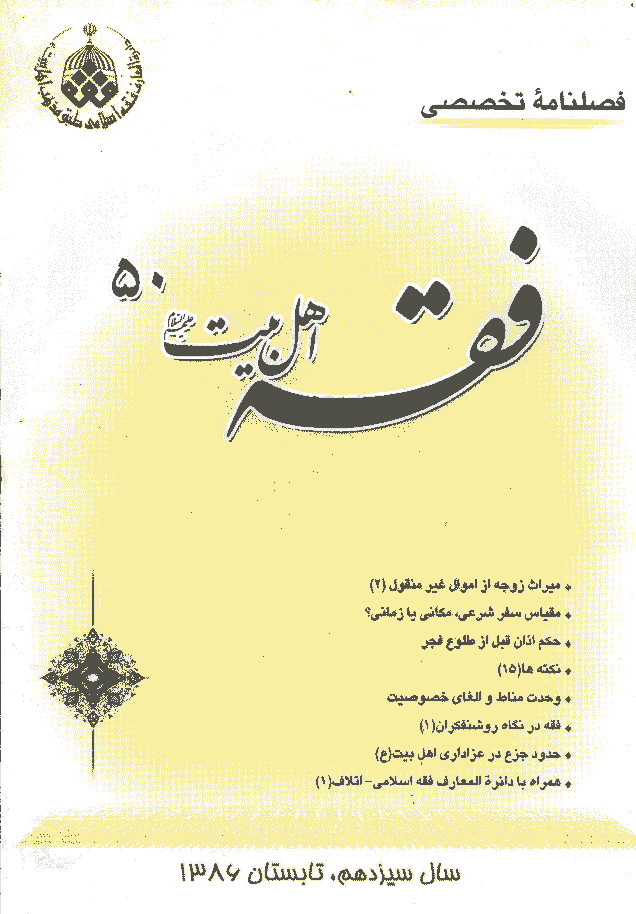 فصلنامهٔ تخصصی
فقه
اهل بیت
علیهم السلام
۵۰
• میراث زوجه از اموال غیر منقول (۲)
• مقیاس سفر شرعی، مکانی یا زمانی؟
• حکم اذان قبل از طلوع فجر
• نکته ها(۱۵)
• وحدت مناط و الغای خصوصیت
• فقه در نگاه روشنفکران(۱)
• حدود جزع در عزاداری اهل بیت(ع)
• همراه با دائرة المعارف فقه اسلامی- اتلاف(۱)
سال سیزدهم، تابستان ۱۳۸۶